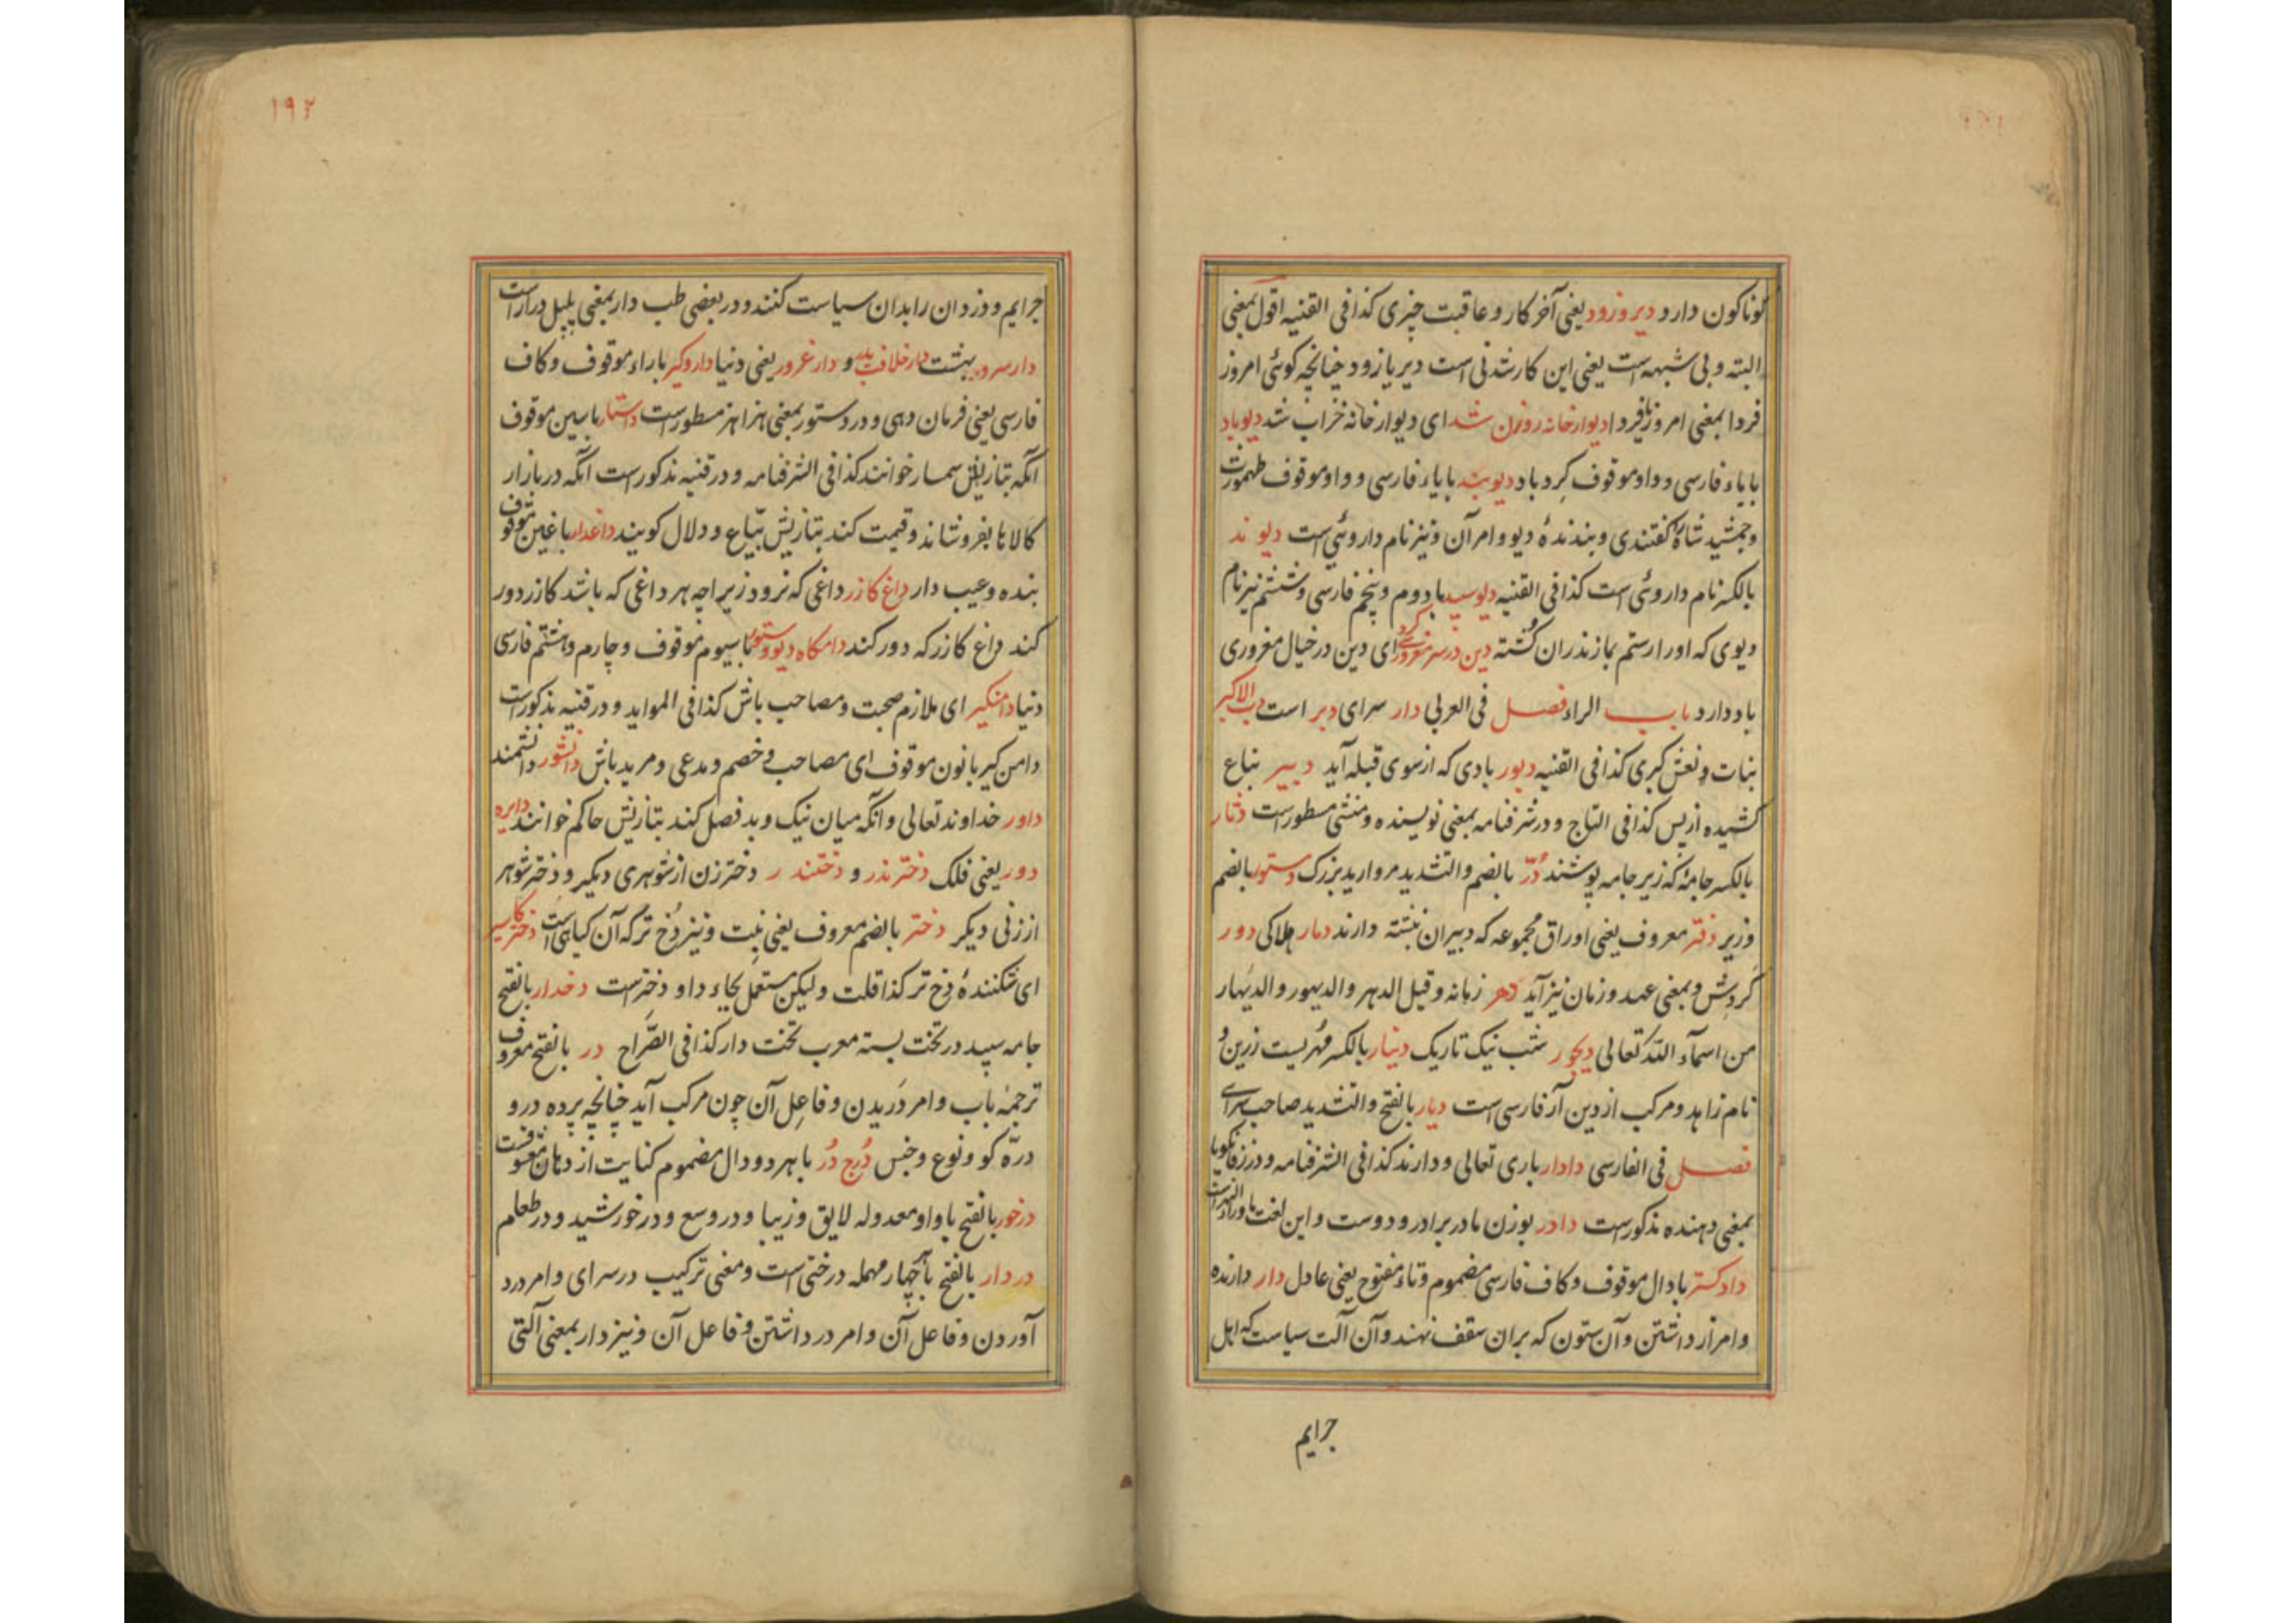 کوناکون دارد دیر و زود یعنی آخر کار و عاقبت چیزی کذا فی القنیه اقول بمعنی
البته و بی شبهه است یعنی این کار شدنی است دیر یا زود چنانچه کوئی امروز
فردا بمعنی امروز یا فردا دیوار خانه روزن شد ای دیوار خانه خراب شد دیوباد
با یاء فارسی و واو موقوف کرد باد دیوبند با یاء فارسی و واو موقوف طهمورث
و جمشید شاه را کفتندی و بندندهٔ دیو و امر آن و نیز نام داروئی است دیوند
بالکسر نام داروئی است کذا فی القنیه دیوسپید با دوم و پنجم فارسی و ششتم نیز نام
دیوی که او را رستم بمازندران کُشته دین در سر مغروری کرد ای دین در خیال مغروری
باد دارد باب الراء فصل فی العربی دار سرای دبر است دب الاکبر
بنات و نعش کبری کذا فی القنیه دبور بادی که از سوی قبله آید دبیر
کشیده از پس کذا فی التاج و در شرفنامه بمعنی نویسنده و منشی مسطور است دثار
بالکسر جامهٔ که زیر جامه پوشند دُرّ بالضم والتشدید مروارید بزرک دستور بالضم
وزیر دفتر معروف یعنی اوراق مجموعه که دبیران نبشته دارند دمار هلاکی دور
کردش و بمعنی عهد و زمان نیز آید دهر زمانه و قیل الدهر والدیهور والدیهار
من اسمآء اللّه تعالی دیجور شب نیک تاریک دینار بالکسر مُهریست زرین و
نام زاهد و مرکب از دین آر فارسی است دیار بالفتح والتشدید صاحب سرای
فصل فی الفارسی دادار باری تعالی و دارند کذا فی الشرفنامه و در زفانکویا
بمعنی دهنده مذکورست دادر بوزن مادر برادر و دوست و این لغت ماوراء النهر است
دادکستر با دال موقوف و کاف فارسی مضموم و تاء مفتوح یعنی عادل دار دارنده
و امر از داشتن و آن ستون که بران سقف نهند و آن آلت سیاست که اهل
جرایم
۱۹۲
جرایم و دزدان را بدان سیاست کنند و در بعضی طب دار بمعنی پلپل دراز است
دار سرور بهشت دار خلافت و دار غرور یعنی دنیا دار و کیر با راء موقوف و کاف
فارسی یعنی فرمان دهی و در دستور بمعنی هزاهز مسطورست داستار با سین موقوف
آنکه بتازیش سمسار خوانند کذا فی الشرفنامه و در قنیه مذکورست آنکه در بازار
کالاها بفروشاند و قیمت کند بتازیش بیّاع و دلال کویند داغدار با غین موقوف
بنده و عیب دار داغ کازر داغی که نرود زیراچه هر داغی که باشد کازر دور
کند داغ کازر که دور کند دامکاه دیو و ستور با سیوم موقوف و چارم و هشتم فارسی
دنیا دامنکیر ای ملازم صحبت و مصاحب باش کذا فی الموايد و در قنیه مذکورست
دامن کیر با نون موقوف ای مصاحب و خصم و مدعی و مرید باش دانشور دانشمند
داور خداوند تعالی و آنکه میان نیک و بد فصل کند بتازیش حاکم خوانند دایره
دور یعنی فلک دختر ندر و دختندر دختر زن از شوهری دیکر و دختر شوهر
از زنی دیکر دختر بالضم معروف یعنی بنت و نیز دُخ تر که آن کیاهی است
ای شکنندهٔ دخ تر کذا قلت و لیکن مستعمل بجاء داو دخترست دخدار بالفتح
جامه سپید در تخت بسته معرب تخت دار کذا فی الصُّراح در بالفتح معروف
ترجمهٔ باب و امر دَریدن و فاعِل آن چون مرکب آید چنانچه پرده در و
درّه کو و نوع و جنس دُرج دُر با هر دو دال مضموم کنایت از دهان معشوقست
درخور بالفتح با واو معدوله لایق و زیبا و در وسع و در خورشید و در طعام
دردار بالفتح مهمله درختی است و معنی ترکیب در سرای و امر درد
آوردن و فاعل آن و امر درد داشتن و فاعل آن و نیز دار بمعنی آلتی